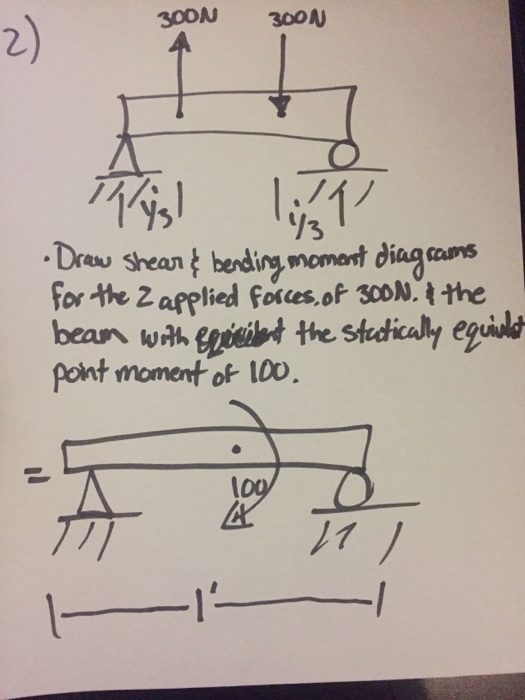 2)
300N 300N
1/3 1/3
• Draw shear & bending moment diagrams
for the 2 applied forces, of 300N. & the
beam with the statically equivalent
point moment of 100.
=
100
1'